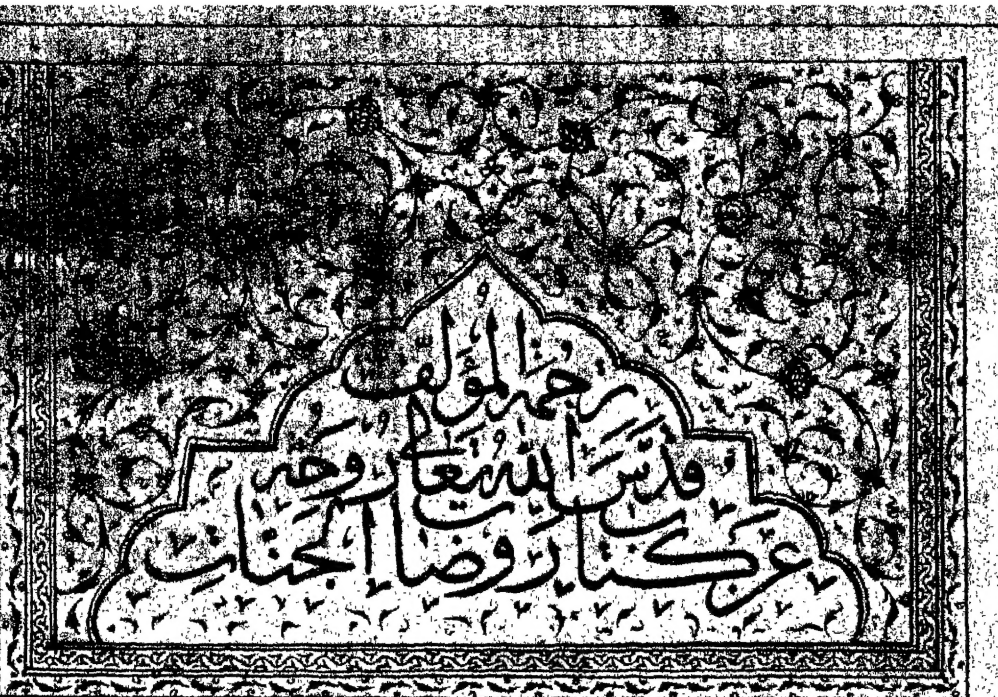 ترجمة المؤلّف
قدّس الله تعالى روحه
عن كتاب روضات الجنات